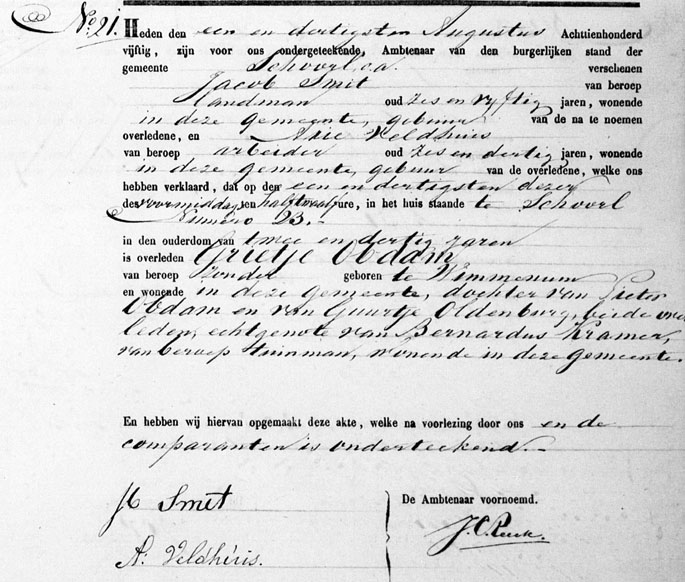 No. 21.
Heden den een en dertigsten Augustus Achttienhonderd
vijftig, zijn voor ons ondergeteekende, Ambtenaar van den burgerlijken stand der
gemeente Schoorl ca. verschenen
Jacob Smit van beroep
landman oud zes en vyftig jaren, wonende
in deze gemeente, gebuur van de na te noemen
overledene, en Arie Veldhuis
van beroep arbeider oud zes en dertig jaren, wonende
in deze gemeente, gebuur van de overledene, welke ons
hebben verklaard, dat op den een en dertigsten dezer
des voormiddags ten half twaalf ure, in het huis staande te Schoorl
Numero 23.-
in den ouderdom van twee en dertig jaren
is overleden Grietje Obdam
van beroep zonder geboren te Wimmenum
en wonende in deze gemeente, dochter van Pieter
Obdam en van Guurtje Oldenburg, beide over
leden, echtgenote van Bernardus Kramer,
van beroep tuinman, wonende in deze gemeente.
En hebben wij hiervan opgemaakt deze akte, welke na voorlezing door ons en de
comparanten is onderteekend.-
Smit
De Ambtenaar voornoemd.
A: Veldhuis.